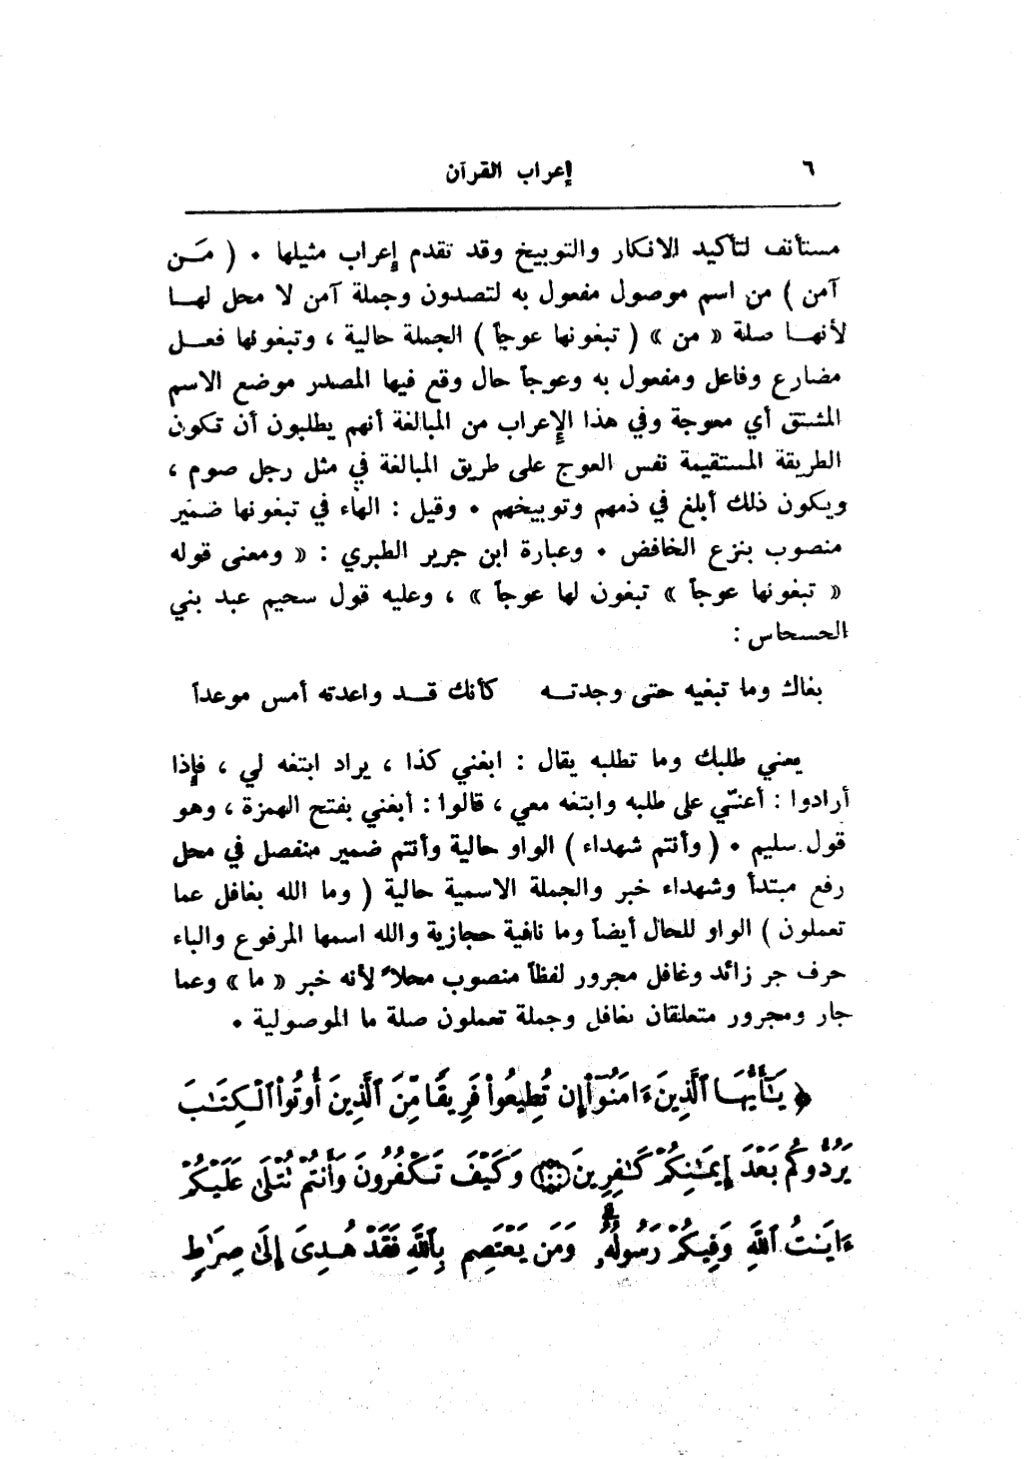 ٦ إعراب القرآن
مستأنف لتأكيد الانكار والتوبيخ وقد تقدم إعراب مثيلها ٠ ( مَـن
آمن ) من اسم موصول مفعول به لتصدون وجملة آمن لا محل لهـا
لأنهـا صلة « من » ( تبغونها عوجاً ) الجملة حالية ، وتبغونها فعـل
مضارع وفاعل ومفعول به وعوجاً حال وقع فيها المصدر موضع الاسم
المشتق أي معوجة وفي هذا الإعراب من المبالغة أنهم يطلبون أن تكون
الطريقة المستقيمة نفس العوج على طريق المبالغة في مثل رجل صوم ،
ويكون ذلك أبلغ في ذمهم وتوبيخهم ٠ وقيل : الهاء في تبغونها ضمير
منصوب بنزع الخافض ٠ وعبارة ابن جرير الطبري : « ومعنى قوله
« تبغونها عوجاً » تبغون لها عوجاً » ، وعليه قول سحيم عبد بني
الحسحاس :
بغاك وما تبغيه حتى وجدتـه كأنك قـد واعدته أمس موعداً
يعني طلبك وما تطلبه يقال : ابغني كذا ، يراد ابتغه لي ، فإذا
أرادوا : أعنّي على طلبه وابتغه معي ، قالوا : أبغني بفتح الهمزة ، وهو
قول سليم ٠ ( وأنتم شهداء ) الواو حالية وأنتم ضمير منفصل في محل
رفع مبتدأ وشهداء خبر والجملة الاسمية حالية ( وما الله بغافل عما
تعملون ) الواو للحال أيضاً وما نافية حجازية والله اسمها المرفوع والباء
حرف جر زائد وغافل مجرور لفظاً منصوب محلاً لأنه خبر « ما » وعما
جار ومجرور متعلقان بغافل وجملة تعملون صلة ما الموصولية ٠
﴿ يَـٰٓأَيُّهَا ٱلَّذِينَ ءَامَنُوٓا۟ إِن تُطِيعُوا۟ فَرِيقًا مِّنَ ٱلَّذِينَ أُوتُوا۟ ٱلْكِتَـٰبَ
يَرُدُّوكُم بَعْدَ إِيمَـٰنِكُمْ كَـٰفِرِينَ ﴿١٠٠﴾ وَكَيْفَ تَكْفُرُونَ وَأَنتُمْ تُتْلَىٰ عَلَيْكُمْ
ءَايَـٰتُ ٱللَّهِ وَفِيكُمْ رَسُولُهُۥ ۗ وَمَن يَعْتَصِم بِٱللَّهِ فَقَدْ هُدِىَ إِلَىٰ صِرَٰطٍ